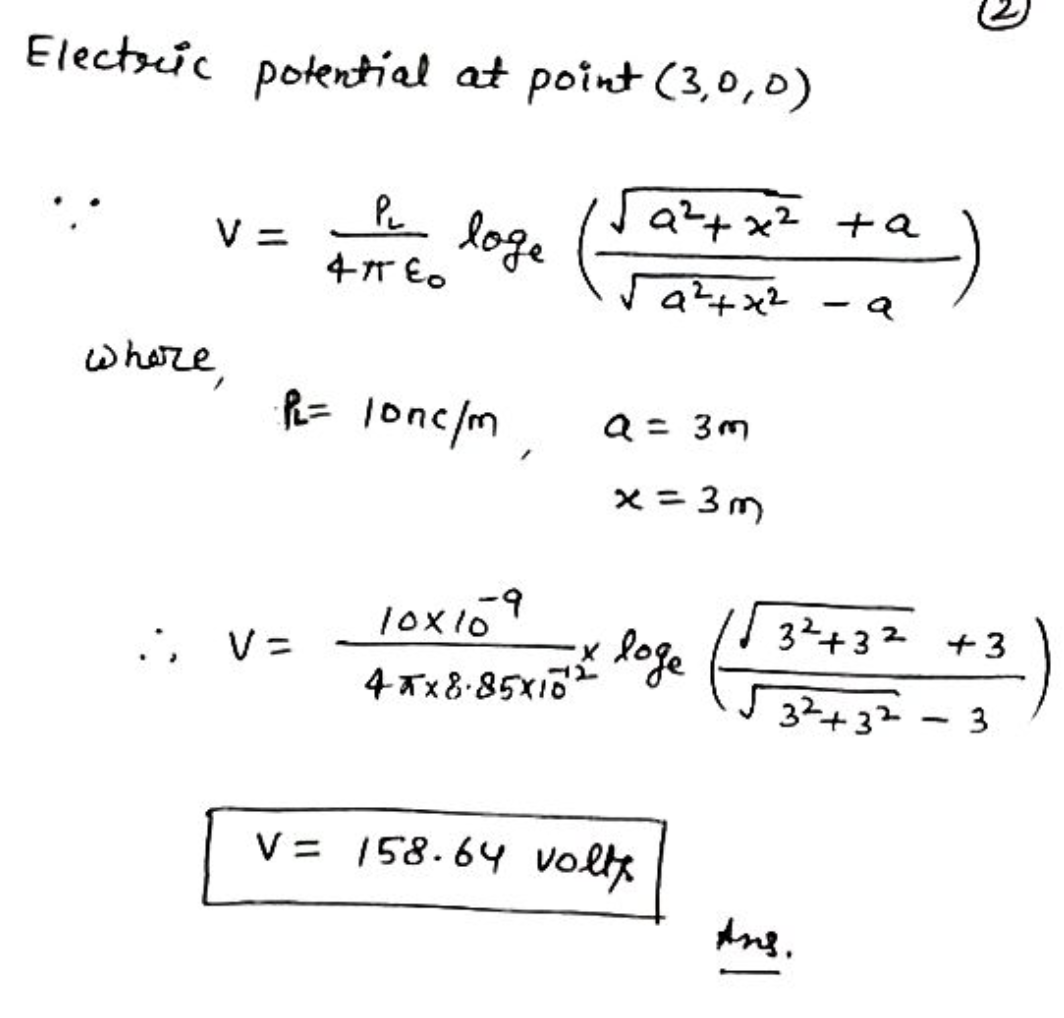 ②
Electric potential at point (3,0,0)
∵ V = ρL / 4πε₀ logₑ ( (√(a²+x²) + a) / (√(a²+x²) - a) )
where,
ρL = 10nc/m , a = 3m
x = 3m
∴, V = 10×10⁻⁹ / 4π×8.85×10⁻¹² × logₑ ( (√(3²+3²) + 3) / (√(3²+3²) - 3) )
V = 158.64 volts
Ans.